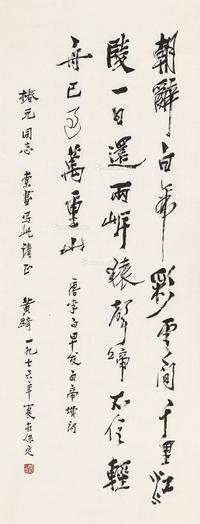 朝辭白帝彩雲間千里江
陵一日還兩岸猿聲啼不住輕
舟已過萬重山
唐李白早發白帝城詩
元同志 索書寫此請正 黃綺 一九七六年夏在保定